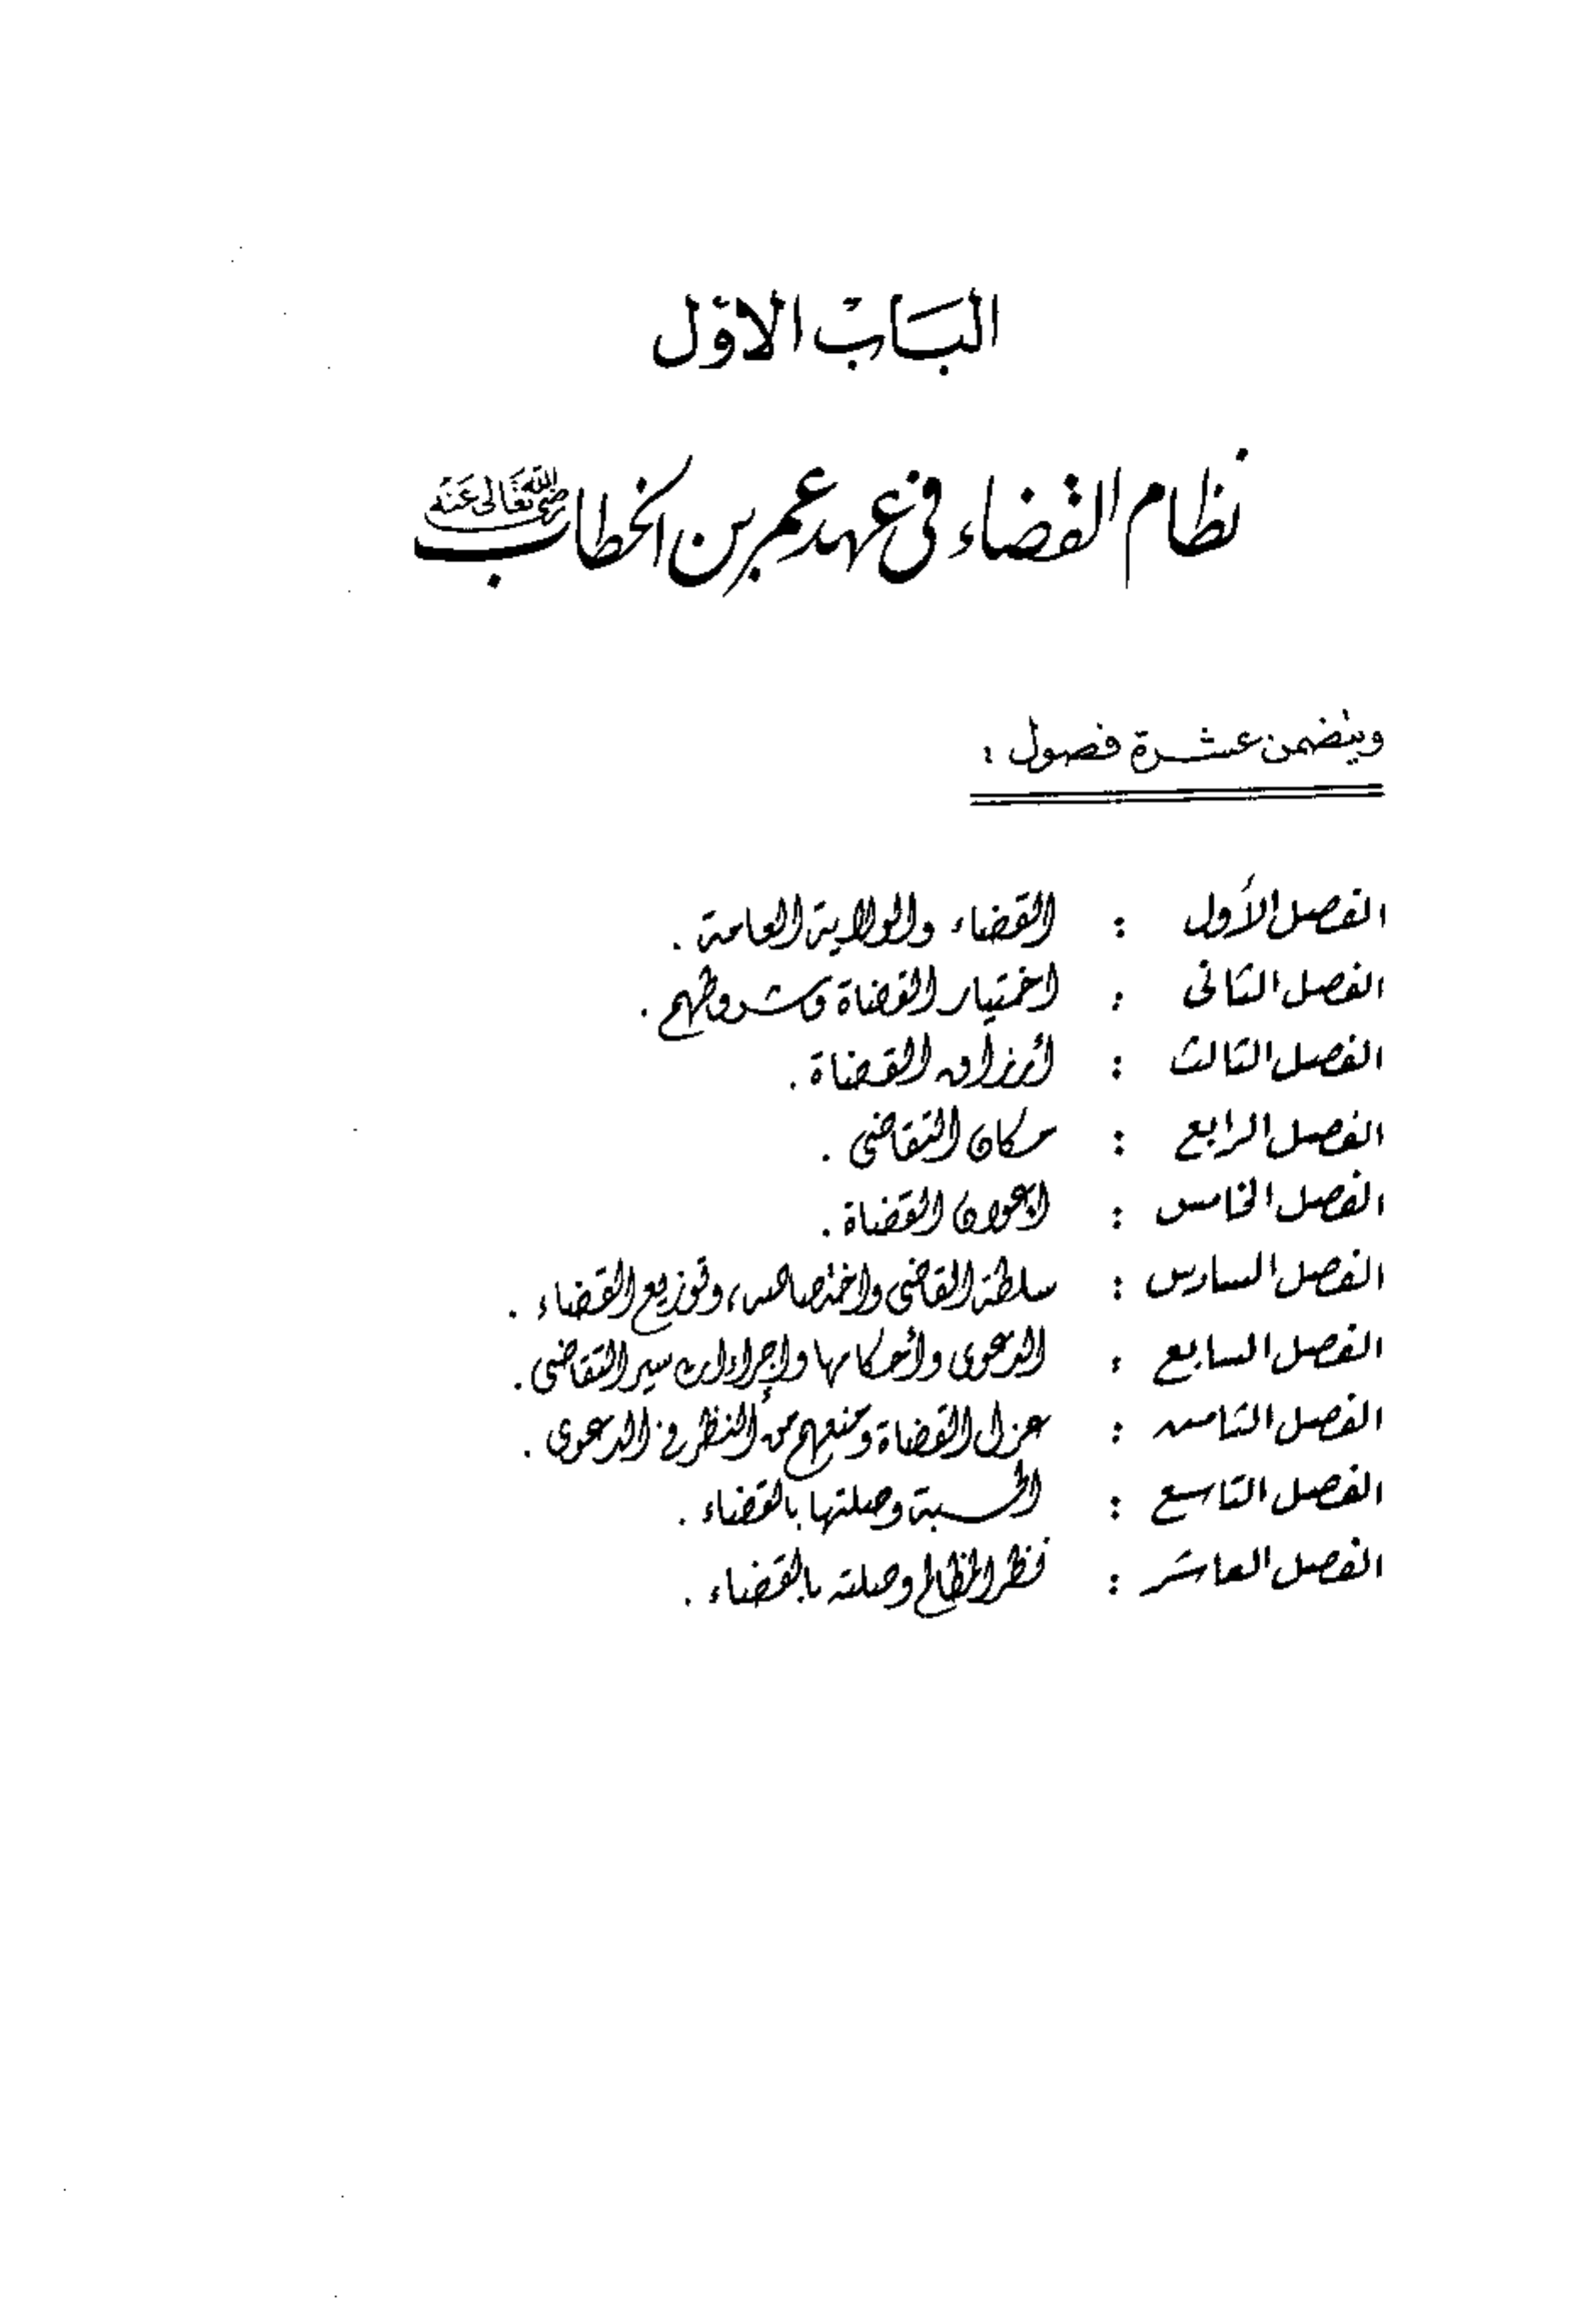 الباب الاول
نظام القضاء في عهد عمر بن الخطاب رضي الله تعالى عنه
ويتضمن عشرة فصول :
الفصل الأول : القضاء والولاية العامة .
الفصل الثاني : اختيار القضاة وشروطهم .
الفصل الثالث : أرزاق القضاة .
الفصل الرابع : مكان التقاضي .
الفصل الخامس : اعوان القضاة .
الفصل السادس : سلطة القاضي واختصاصه، وتوزيع القضاء .
الفصل السابع : الدعوى وأحكامها وإجراءات سير التقاضي .
الفصل الثامن : عزل القضاة ومنعهم من النظر في الدعوى .
الفصل التاسع : الحسبة وصلتها بالقضاء .
الفصل العاشر : نظر المظالم وصلته بالقضاء .